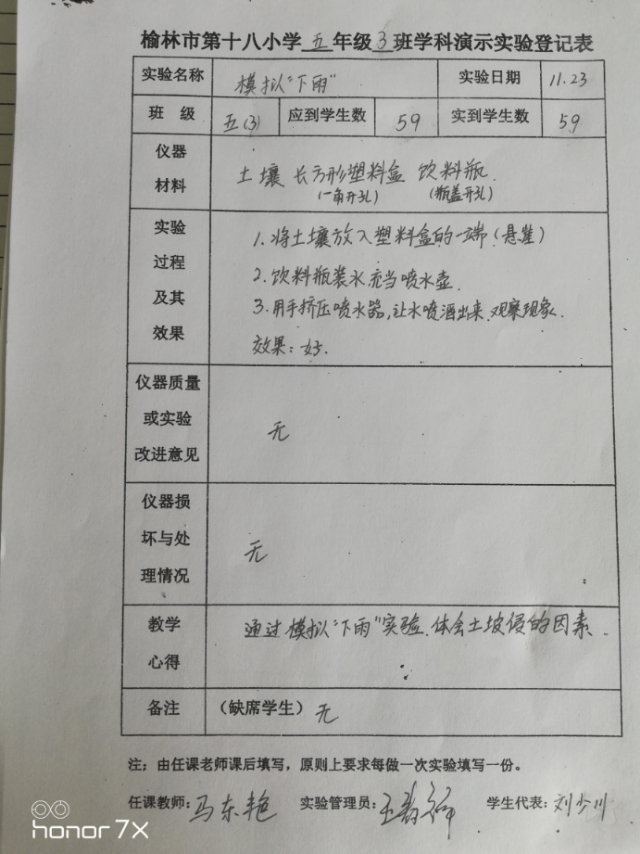 榆林市第十八小学五年级3班学科演示实验登记表
实验名称 模拟"下雨" 实验日期 11.23
班 级 五(3) 应到学生数 59 实到学生数 59
仪器
材料
土壤 长方形塑料盒 饮料瓶.
(一角开孔) (瓶盖开孔)
实验
过程
及其
效果
1.将土壤放入塑料盒的一端(悬崖)
2.饮料瓶装水,充当喷水壶.
3.用手挤压喷水器,让水喷洒出来.观察现象.
效果:好.
仪器质量
或实验
改进意见
无
仪器损
坏与处
理情况
无
教学
心得
通过模拟"下雨"实验.体会土坡侵的因素.
备注 (缺席学生) 无
注:由任课老师课后填写,原则上要求每做一次实验填写一份。
任课教师:马东艳 实验管理员: 学生代表:刘少川
honor 7X